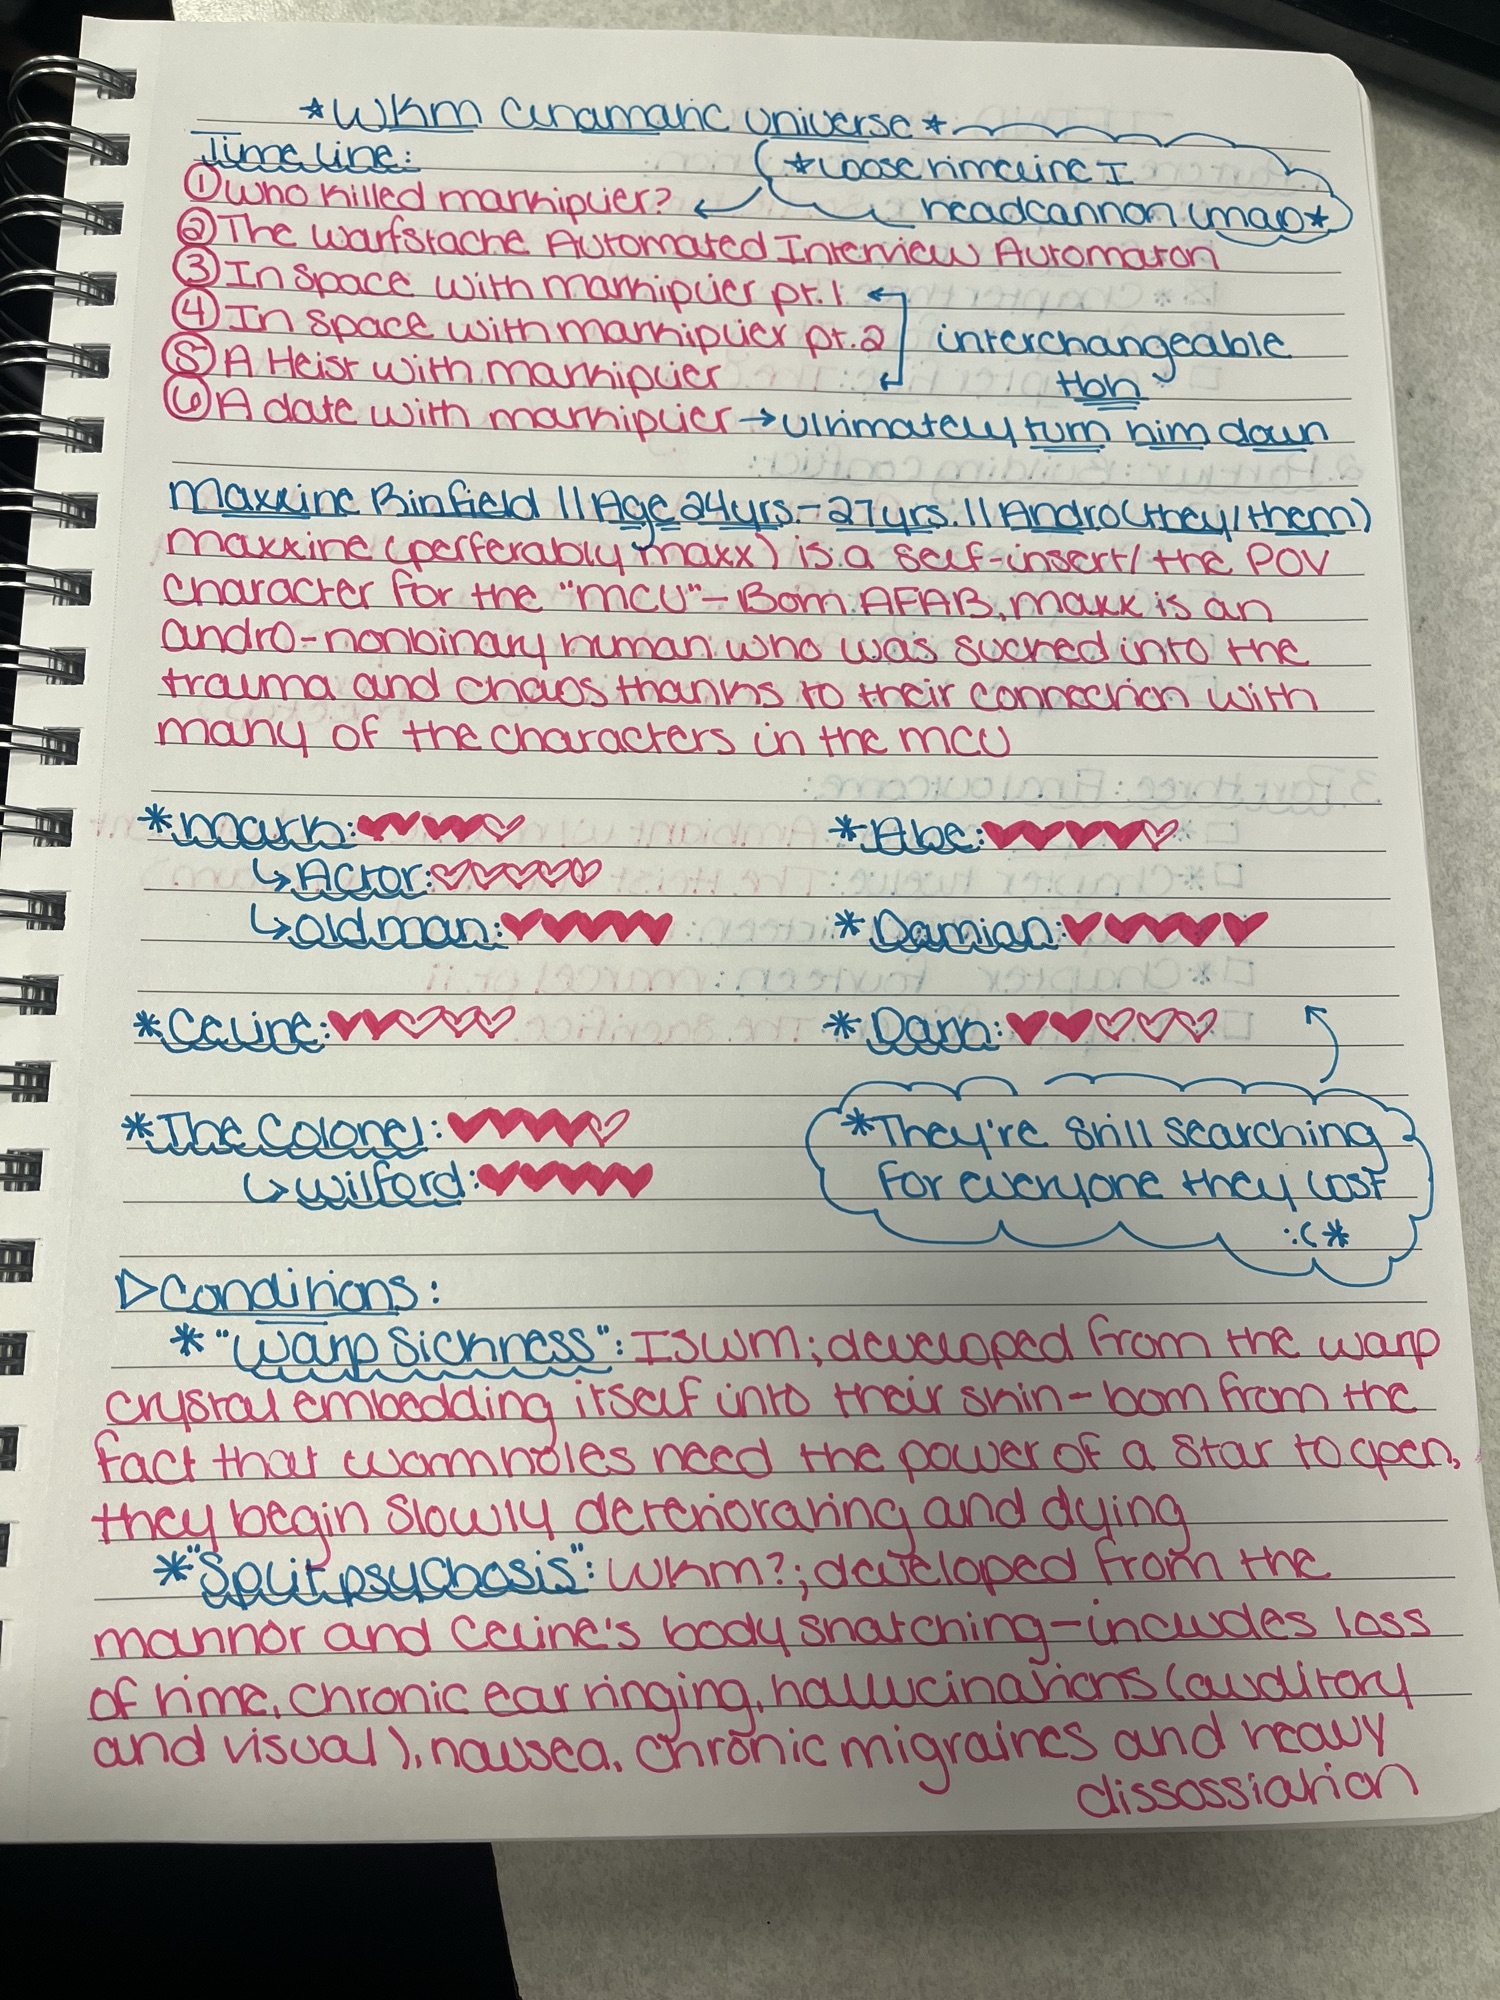 *WKM Cinamatic Universe*
Timeline:
*loose timeline I
headcannon lmao*
① Who killed markiplier?
② The Warfstache Automated Interview Automaton
③ In Space with markiplier pt.1
④ In Space with markiplier pt.2
interchangeable
tbh
⑤ A Heist with markiplier
⑥ A date with markiplier → ultimately turn him down
Maxxine Binfield || Age 24yrs.-27yrs. || Andro (they/them)
Maxxine (perferably maxx) is a self-insert/ the POV
character for the "mcu" - Born AFAB, maxx is an
andro-nonbinary human who was sucked into the
trauma and chaos thanks to their connection with
many of the characters in the mcu
*Mark: ♥♥♥♥♡
*Abe: ♥♥♥♥♡
↳Actor: ♡♡♡♡♡
↳old man: ♥♥♥♥♥
*Damian: ♥♥♥♥♥
*Celine: ♥♥♡♡♡
*Dark: ♥♥♡♡♡
*The Colonel: ♥♥♥♥♡
↳Wilford: ♥♥♥♥♥
*They're still searching
for everyone they lost
:(*
▷Conditions:
* "Warp Sickness": ISWM; developed from the warp
crystal embedding itself into their skin - born from the
fact that wormholes need the power of a star to open,
they begin slowly deteriorating and dying
* "Split psychosis": WKM?; developed from the
mannor and Celine's body snatching - includes loss
of time, chronic ear ringing, hallucinations (auditory
and visual), nausea, chronic migraines and heavy
dissossiation